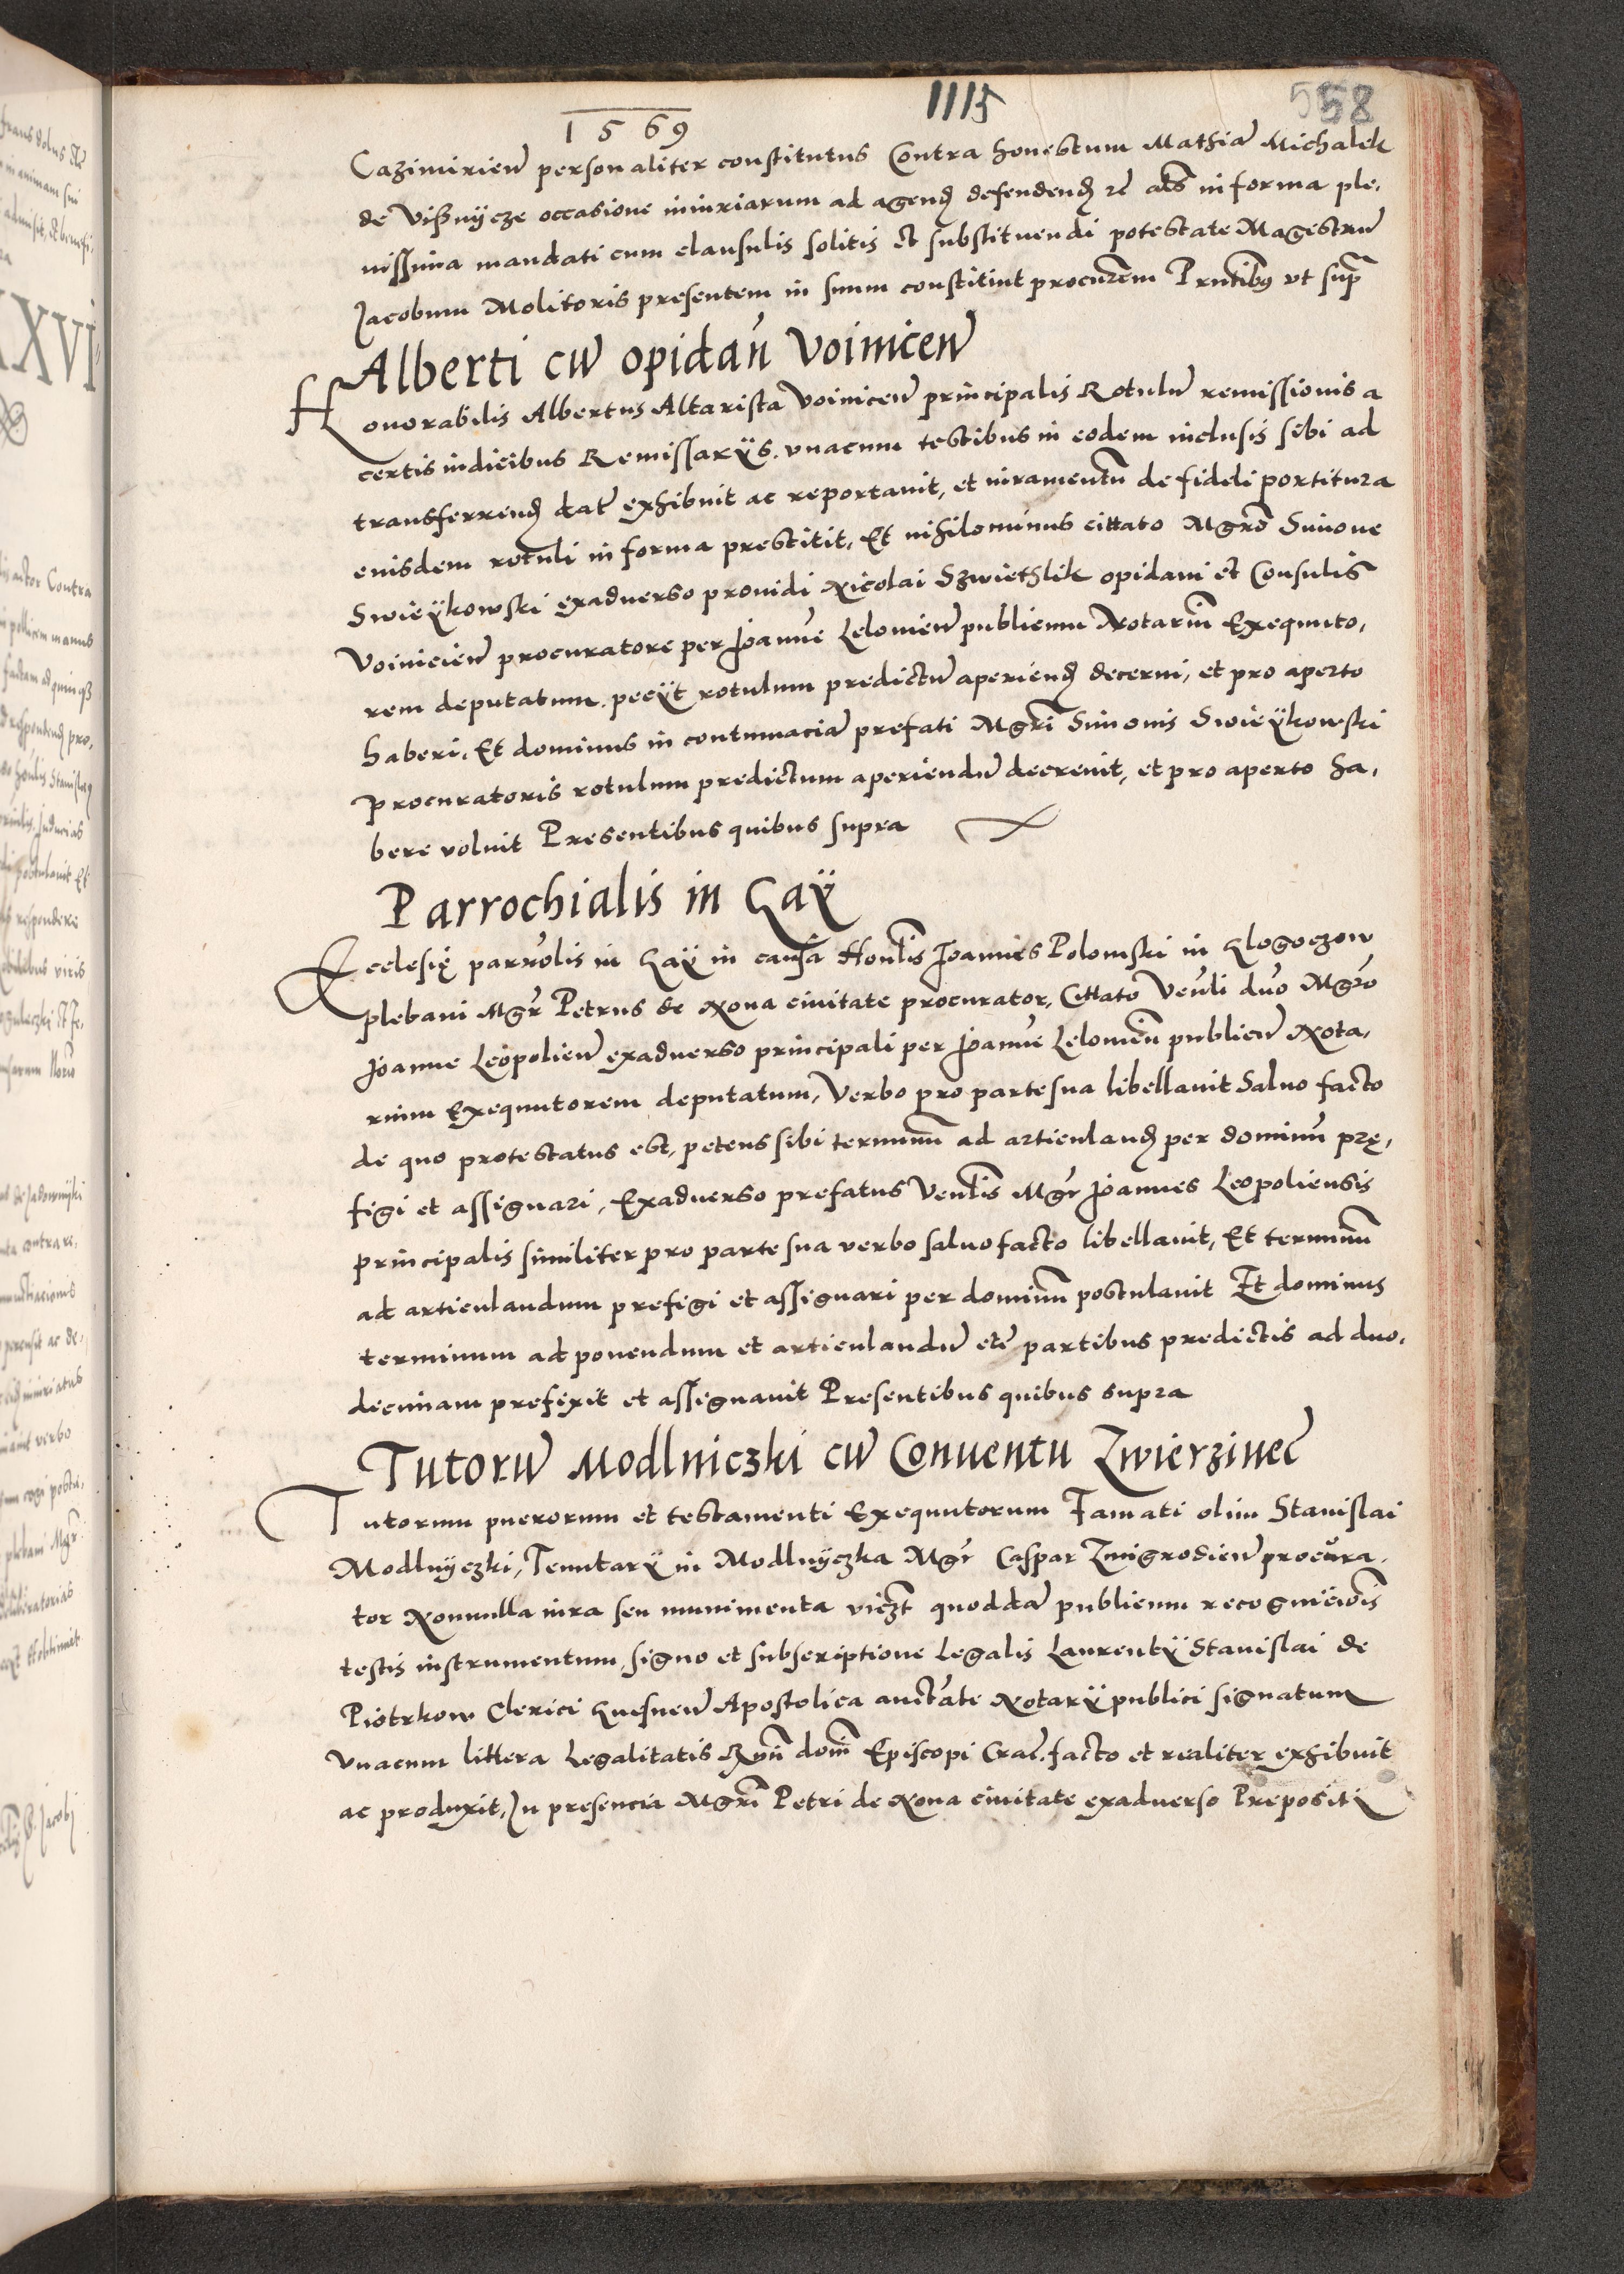 1569
1115
558
Cazimirien personaliter constitutus Contra honestum Mathiā Michalek
de Vißnycze occasione iniuriarum ad agend defendend &c als in forma ple,
nissima mandati cum clausulis solitis et substituendi potestate Magestrū
Jacobum Molitoris presentem in suum constituit procurem Pntibus vt supra
Alberti cū opidan Voinicen
Honorabilis Albertus Altarista Voinicen principalis Rotulū remissionis a
certis iudicibus Remissarijs. vnacum testibus in eodem inclusis sibi ad
transferrend dat exhibuit ac reportauit, et iuramentū de fideli portitura
eiusdem rotuli in forma prestitit, Et nihilominus cittato Mgro Simone
Swieykowski exaduerso prouidi Nicolai Szwiethlik opidani et Consulis
Voinicien procuratore per Joanne Lelouien publicum Notariū Exequuto,
rem deputatum. pecyt rotulum predictū aperiend decerni, et pro aperto
haberi, Et dominus in contumaciā prefati Mgri Simonis Swieykowski
procuratoris rotulum predictum aperiendū decreuit, et pro aperto ha,
bere voluit Presentibus quibus supra
Parrochialis in Gay
Ecclesię parrolis in Gay in causa Honlis Joannes Polomski in Glogoczow
plebani Mgr Petrus de Noua ciuitate procurator, Cittato Venli dno Mgro
Joanne Leopolien exaduerso principali per Joanne Lelouien publicū Nota,
rium Exequutorem deputatum, Verbo pro parte sua libellauit Saluo facto
de quo protestatus est, petens sibi terminū ad articuland per dominū prę,
figi et assignari, Exaduerso prefatus Venlis Mgr Joannes Leopoliensis
principalis similiter pro parte sua verbo saluo facto libellauit, Et terminū
ad articulandum prefigi et assignari per dominū postulauit Et dominus
terminum ad ponendum et articulandū etc partibus predictis ad duo,
decimam prefixit et assignauit Presentibus quibus supra
Tutorū Modlniczki cū Conuentu Zwierzinec
Tutorum puerorum et testamenti Exequutorum Famati olim Stanislai
Modlnyczki, Tenutary in Modlnyczka Mgr Caspar Zmigrodien procura,
tor Nonnulla iura seu munimenta vizt quoddā publicum recognicionis
testis instrumentum, signo et subscriptione Legalis Laurenty Stanislai de
Piotrkow Clerici Gnesnen Apostolica auctate Notary publici signatum
vnacum littera Legalitatis Rmi domi Episcopi Crac. facto et realiter exhibuit
ac produxit, In presencia Mgri Petri de Noua ciuitate exaduerso Prepositi